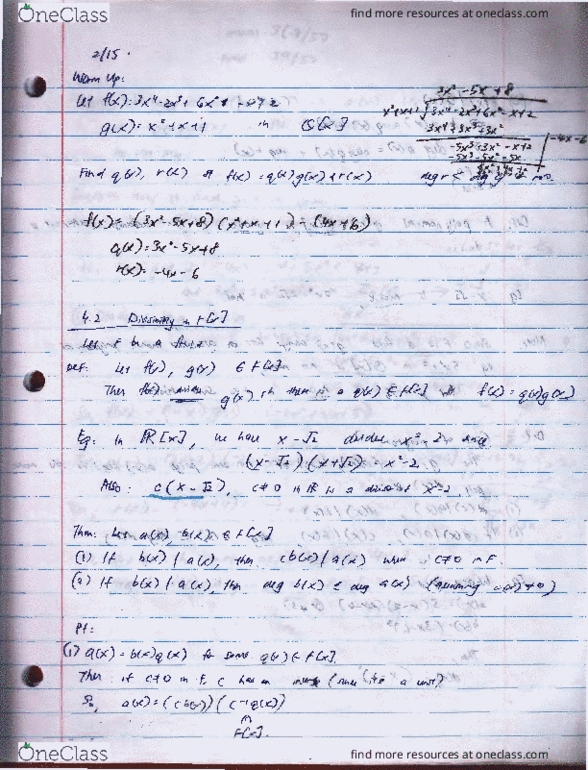 OneClass
find more resources at oneclass.com
2/15.
Warm Up:
Let f(x)=3x⁴-2x³+6x²-x+2
g(x)=x²+x+1 in Q[x]
3x²-5x+8
x²+x+1 3x⁴-2x³+6x²-x+2
3x⁴+3x³+3x²
-5x³+3x²-x+2
-5x³-5x²-5x
-4x-6
Find q(x), r(x) f(x)=q(x)g(x)+r(x) deg r < deg g
f(x)=(3x²-5x+8)(x²+x+1)-(4x+6)
q(x)=3x²-5x+8
r(x)=-4x-6
4.2 Divisibility in F[x]
Let F be a
Def: Let f(x), g(x) ∈ F[x]
Then f(x) g(x) if there is a q(x) ∈ F[x] f(x)=q(x)g(x)
Eg: in ℝ[x], we have x-√2 divides x²-2 since
(x-√2)(x+√2)=x²-2.
Also: c(x-√2), c≠0 in ℝ is a divisor x²-2.
Thm: Let a(x), b(x) ∈ F[x]
(1) If b(x) | a(x), then cb(x) | a(x) when c≠0 in F.
(2) If b(x) | a(x), then deg b(x) ≤ deg a(x) (assuming a(x)≠0)
Pf:
(1) a(x)=b(x)q(x) for some q(x) ∈ F[x].
Then if c≠0 in F, c has an (since it's a unit)
So, a(x)=(cb(x))(c⁻¹q(x))
∈
F[x].
OneClass
find more resources at oneclass.com